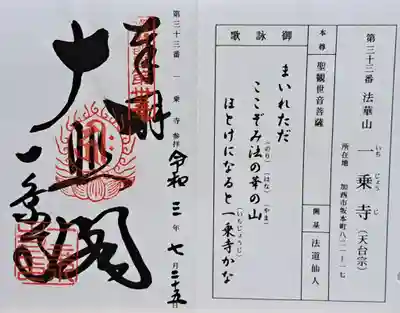 第三十三番 法華山 一乗寺(天台宗)
いち じょう じ
所在地 加西市坂本町八二一ー一七
本尊 聖観世音菩薩 開基 法道仙人
御詠歌
まいれただ
ここぞみ法の華の山
(のり)(はな)(やま)
ほとけになると一乗寺かな
(いちじょうじ)
第三十三番 一乗寺 参拝 令和三年七月二十五日
奉拝
大悲閣
一乗寺